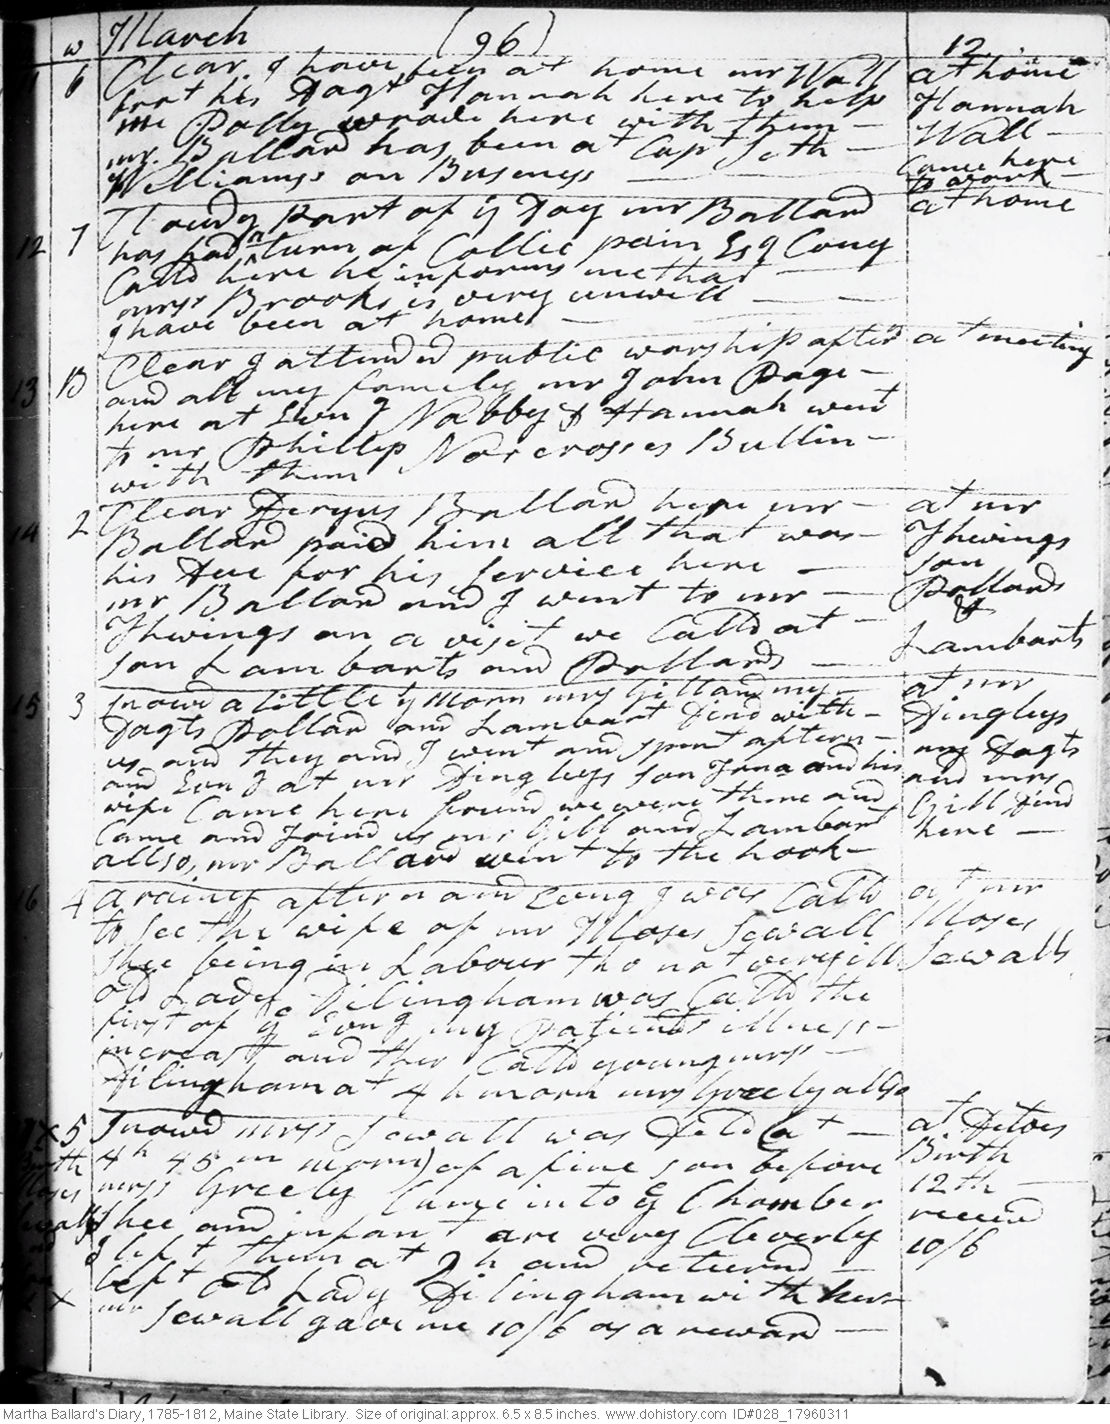 w March (96) 12
11 6 Clear I have been at home mr Wall
sent his Dagt Hannah here to help
me Polly wove here with them —
mr. Ballard has been at Capt Seth —
Williams's on Buseness —
at home
Hannah
Wall —
Came here
to work —
12 7 Cloudy part of ye Day mr Ballard
has had a turn of Collic pain Esq Cony
Calld here he informs me that —
mrss Brooks is very unwell —
I have been at home —
at home
13 B Clear I attended public worship aftern
and all my family mr John Page —
here at Evng Nabby & Hannah went
to mr Phillip Norcrosses Bullin —
with them
at meeting
14 2 Clear Dergus Ballard here mr —
Ballard paid him all that was —
his Due for his Service here —
mr Ballard and I went to mr —
Thwings on a visit we Calld at —
son Lambarts and Pollards —
at mr
Thwings
son
Pollards
&
Lambarts
15 3 Snowd a little ye Morn mrs Gill and my —
Dagts Pollard and Lambart Dind with —
us and they and I went and spent aftern —
and Evng at mr Dingleys son Jona and his
wife Came here found we were there and
Came and Joind us mr Gill and Lambart
allso, mr Ballard went to the hook —
at mr
Dingleys
my Dagts
and mrs
Gill Dind
here —
16 4 a rainy aftern and Evng I was Calld
to See the wife of mr Moses Sewall
Shee being in Labour tho not very ill
old Lady Dilingham was Calld the
first of ye Evng my Patients illness —
increast and they Calld young mrss —
Dilingham at 4 h morn mrs Greely allso
at mr
Moses
Sewalls
17 x 5 Snowd mrss Sewall was Deld (at —
4 h 45 m morn) of a fine son before
mrss Greely Came into ye Chamber
Shee and infant are very Cleverly
I left them at 9 h and returnd —
left old Lady Dilingham with her —
mr Sewall gave me 10/6 as a reward —
at Ditoes
Birth
12th —
receivd
10/6
Birth
Moses
Sewalls
x
Martha Ballard's Diary, 1785-1812, Maine State Library. Size of original: approx. 6.5 x 8.5 inches. www.dohistory.com ID#028_17960311